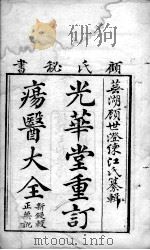 顧氏秘書
蕪湖顧世澄練江氏纂輯
光華堂重訂
瘍醫大全
新鐫較
正無訛